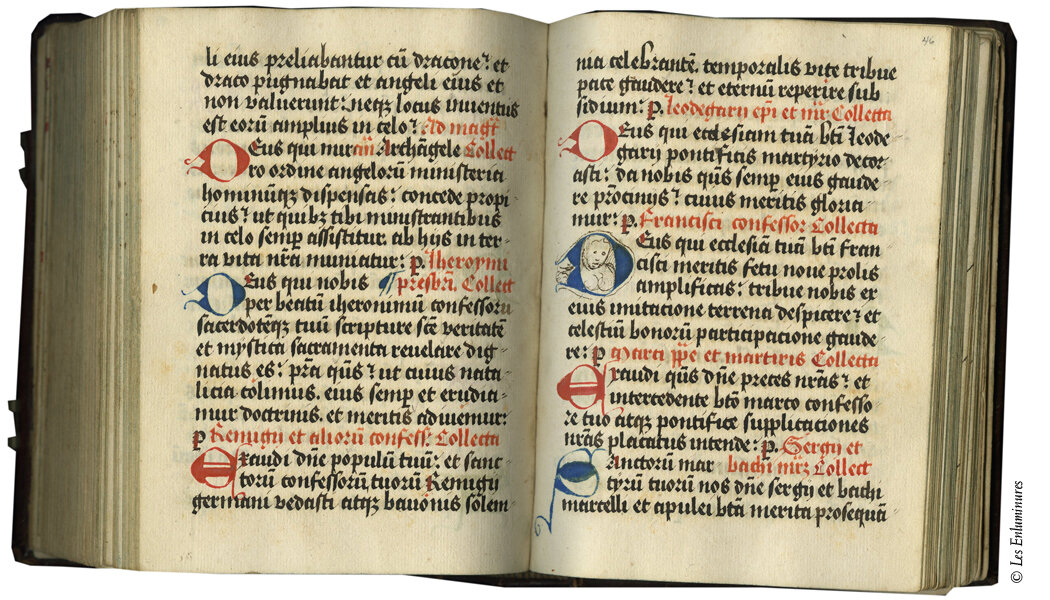 li eius preliabantur cū dracone? et
draco pugnabat et angeli eius et
non valuerunt: neqꝫ locus inuentus
est eorū amplius in celo? Ad magͣt
Deus qui miram Archāgele Collect
ro ordine angelorū ministeria
hominūqꝫ dispensas: concede propi
cius? ut quibꝫ tibi ministrantibus
in celo semp assistitur. ab hys in ter-
ra vita nrā muniatur: p. Iheronymi
Deus qui nobis presbri. Collect
per beatū iheronimū confessorū
sacerdotēqꝫ tuū scripture scē veritatē
et mystica sacramenta reuelare dig-
natus es: prā qūs? ut cuius nata-
licia colimus. eius semp et erudia-
mur doctrinis. et meritis adiuuemur:
p Remigy et aliorū confess: Collecta
Exaudi dne populū tuū: et sanc-
torū confessorū tuorū Remigy
germani vedasti atqꝫ bauonis solem-
46
nia celebrantē. temporalis vite tribue
pace gaudere? et eternū reperire sub
sidium: p. leodegary epi et mr Collecta
Deus qui ecclesiam tuā btī leode-
gary pontificis martyrio decor-
asti: da nobis qūs semp eius gaude-
re prōcinys? cuius meritis gloria
mur: p. Francisci confessor Collecta
Deus qui ecclesiā tuā btī fran
cisci meritis fetu noue prolis
amplificas: tribue nobis ex
eius imitacione terrena despicere? et
celestiū bonorū participacione gaude-
re: p Marci ppe et martiris Collecta
Exaudi qūs dne preces nrās? et
intercedente btō marco confesso-
re tuo atqꝫ pontifice supplicaciones
nrās placatus intende: p. Sergy et
Sanctorū mar bachi mrꝫ Collect
tyrū tuorū nos dne sergy et bachi
marcelli et apulei btā merita prosequā
© Les Enluminures